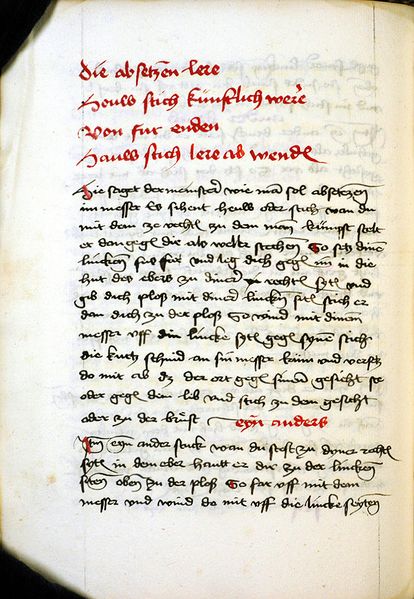 Die absetzen lere
Heuw stich künstlich were
Von fur enden
Hauw stich lere ab wendē
Hie saget der meinster wie man sol absetzen
im messer es sihent heuw oder stich wan du
mit dem zo vechten zu dem man kumpst stelt
er dan gegē dir als welte stechen So setz dinē
lincken fus for und leg dich gegē im in die
hut des ebers zu diner rechtē sytē und
gib dich plos mit diner lincken sitē stich er
dan dich zu der plosz So wind mit dinem
messer uff din lincke sytē gegē synem stich
die kurtz schnid an sin messer
do mit ab dz der ort gegē sinem gesicht ste
oder gegē dem lib und stich zu dem gesicht
oder zu der brust eyn anders
Item eyn ander stuck wan du stest zu dyner rechtē
sytē in dem eber hauet er dir zu der lincken
siten oben zu der plosz So far uff mit dem
messer und wind do mit uff die lincke seyten